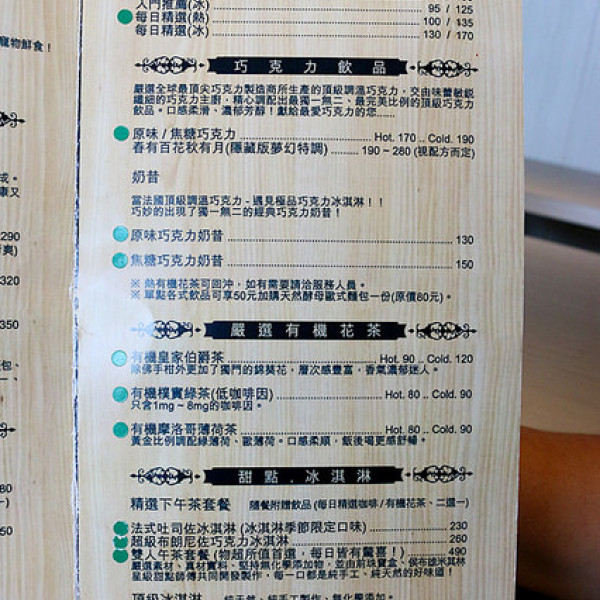 寵物鮮食！
入門推薦(冰) 95 / 125
每日精選(熱) 100 / 135
每日精選(冰) 130 / 170
巧克力飲品
嚴選全球最頂尖巧克力製造商所生產的頂級調溫巧克力，交由味蕾敏銳
纖細的巧克力主廚，精心調配出最獨一無二、最完美比例的頂級巧克力
飲品。口感柔滑、濃郁芳醇！獻給最愛巧克力的您......
原味 / 焦糖巧克力 Hot. 170 .. Cold. 190
春有百花秋有月(隱藏版夢幻特調) 190 ~ 280 (視配方而定)
奶昔
當法國頂級調溫巧克力 - 遇見極品巧克力冰淇淋！！
巧妙的出現了獨一無二的經典巧克力奶昔！
原味巧克力奶昔 130
焦糖巧克力奶昔 150
※ 熱有機花茶可回沖，如有需要請洽服務人員。
※ 單點各式飲品可享50元加購天然酵母歐式麵包一份(原價80元)。
嚴選有機花茶
有機皇家伯爵茶 Hot. 90 .. Cold. 120
除佛手柑外更加了獨門的錦葵花，層次感豐富，香氣濃郁迷人。
有機樸實綠茶(低咖啡因) Hot. 80 .. Cold. 90
只含1mg ~ 8mg的咖啡因。
有機摩洛哥薄荷茶 Hot. 80 .. Cold. 90
黃金比例調配綠薄荷、歐薄荷。口感柔順，飯後喝更感舒暢。
甜點．冰淇淋
精選下午茶套餐 隨餐附贈飲品 (每日精選咖啡 / 有機花茶、二選一)
法式吐司佐冰淇淋 (冰淇淋季節限定口味) 230
超級布朗尼佐巧克力冰淇淋 260
雙人午茶套餐 (物超所值首選，每日皆有驚喜！) 490
嚴選素材、真材實料、堅持無化學添加物，並由前珠寶盒、侯布雄米其林
星級甜點師傅共同開發製作，每一口都是純手工、純天然的好味道！
頂級冰淇淋 純天然、純手工製作、無化學添加。
290
320
350
50